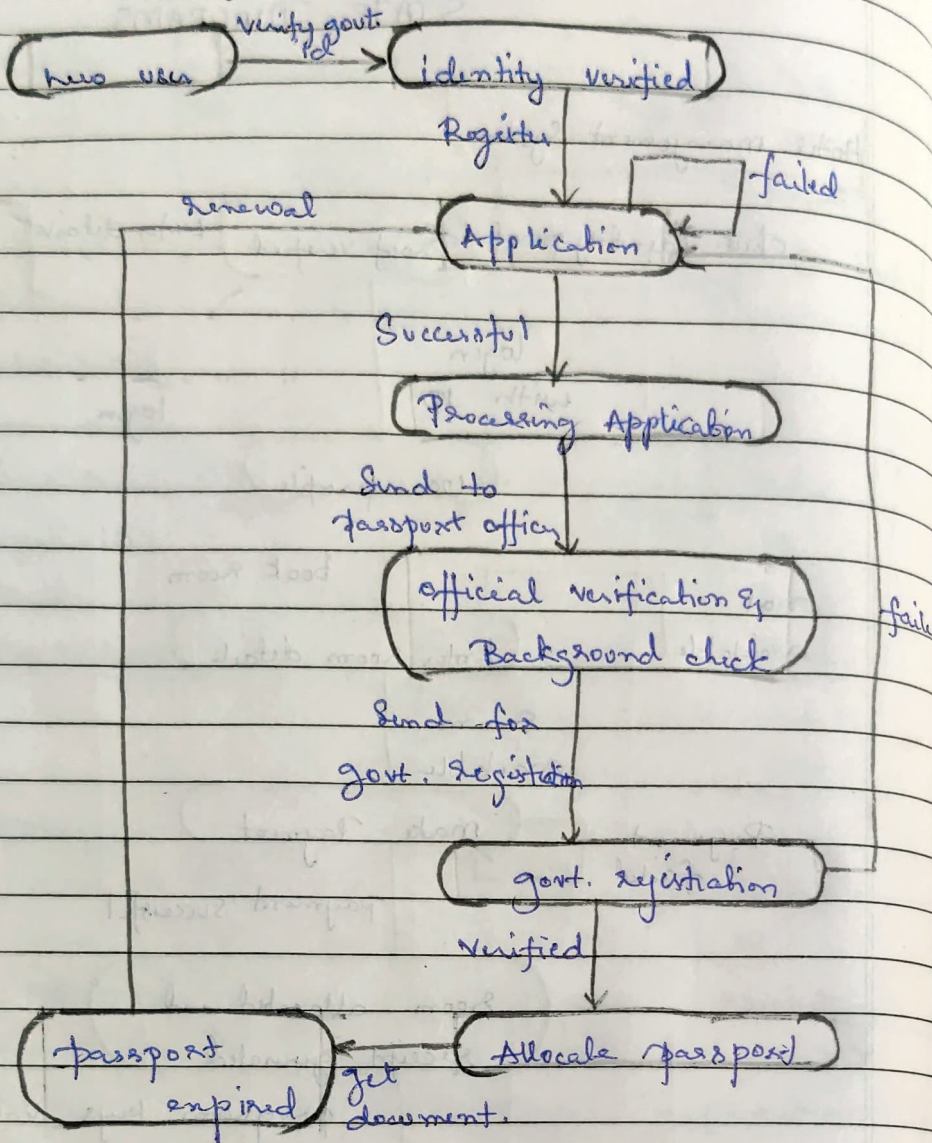 verify govt.
id
new user
identity verified
Register
failed
renewal
Application
Successful
Processing Application
Send to
passport office
official verification &
Background check
fail
Send for
govt. registration
govt. registration
verified
passport
expired
get
document.
Allocate passport